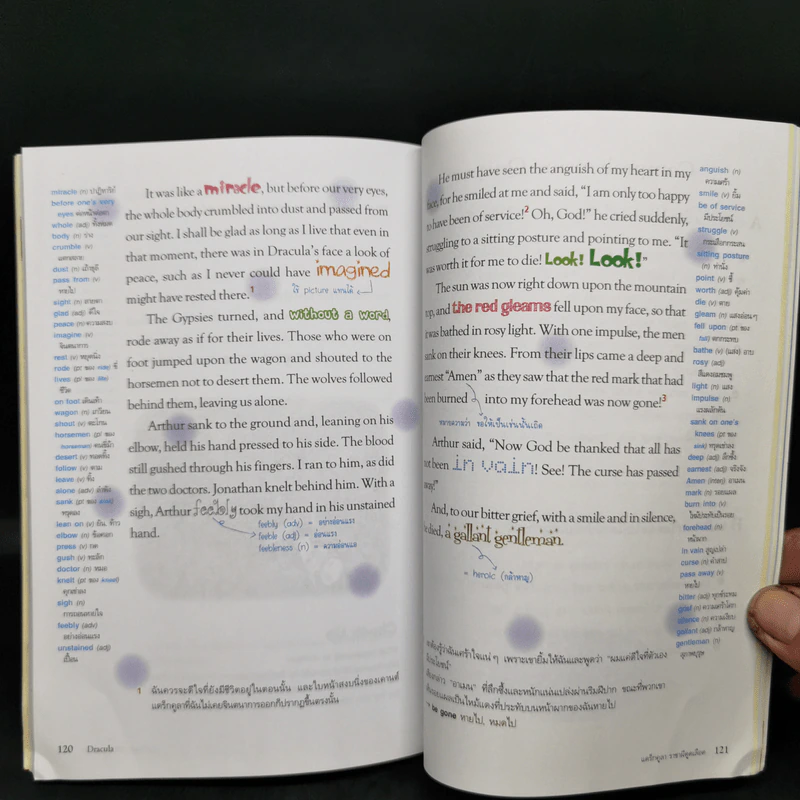 miracle (n) ปาฏิหาริย์
before one's very
eyes ต่อหน้าต่อตา
whole (adj) ทั้งหมด
body (n) ร่าง
crumble (v)
แตกสลาย
dust (n) เถ้าธุลี
pass from (v)
หายไป
sight (n) สายตา
glad (adj) ดีใจ
peace (n) ความสงบ
imagine (v)
จินตนาการ
rest (v) หยุดนิ่ง
rode (pt ของ ride) ขี่
lives (pl ของ life)
ชีวิต
on foot เดินเท้า
wagon (n) เกวียน
shout (v) ตะโกน
horsemen (pl ของ
horseman) คนขี่ม้า
desert (v) ทอดทิ้ง
follow (v) ตาม
leave (v) ทิ้ง
alone (adj) ลำพัง
sank (pt ของ sink)
ทรุดลง
lean on (v) ยัน, ท้าว
elbow (n) ข้อศอก
press (v) กด
gush (v) ทะลัก
doctor (n) หมอ
knelt (pt ของ kneel)
คุกเข่าลง
sigh (n)
การถอนหายใจ
feebly (adv)
อย่างอ่อนแรง
unstained (adj)
เปื้อน
It was like a miracle, but before our very eyes,
the whole body crumbled into dust and passed from
our sight. I shall be glad as long as I live that even in
that moment, there was in Dracula's face a look of
peace, such as I never could have imagined
might have rested there.1
ใช้ picture แทนได้
The Gypsies turned, and without a word,
rode away as if for their lives. Those who were on
foot jumped upon the wagon and shouted to the
horsemen not to desert them. The wolves followed
behind them, leaving us alone.
Arthur sank to the ground and, leaning on his
elbow, held his hand pressed to his side. The blood
still gushed through his fingers. I ran to him, as did
the two doctors. Jonathan knelt behind him. With a
sigh, Arthur feebly took my hand in his unstained
hand.
feebly (adv) = อย่างอ่อนแรง
feeble (adj) = อ่อนแรง
feebleness (n) = ความอ่อนแอ
1 ฉันควรจะดีใจที่ยังมีชีวิตอยู่ในตอนนั้น และใบหน้าสงบนิ่งของเคานต์
แดร็กคูลาที่ฉันไม่เคยจินตนาการออกก็ปรากฏขึ้นตรงนั้น
120 Dracula
He must have seen the anguish of my heart in my
face, for he smiled at me and said, "I am only too happy
to have been of service!2 Oh, God!" he cried suddenly,
struggling to a sitting posture and pointing to me. "It
was worth it for me to die! Look! Look!"
The sun was now right down upon the mountain
top, and the red gleams fell upon my face, so that
it was bathed in rosy light. With one impulse, the men
sank on their knees. From their lips came a deep and
earnest "Amen" as they saw that the red mark that had
been burned into my forehead was now gone!3
หมายความว่า ขอให้เป็นเช่นนั้นเถิด
Arthur said, "Now God be thanked that all has
not been in vain! See! The curse has passed
away!"
And, to our bitter grief, with a smile and in silence,
he died, a gallant gentleman.
= heroic (กล้าหาญ)
รู้ว่าฉันเศร้าใจแน่ๆ เพราะเขายิ้มให้ฉันและพูดว่า "ผมแค่ดีใจที่ตัวเอง
"อาเมน" ที่ลึกซึ้งและหนักแน่นเปล่งผ่านริมฝีปาก ขณะที่พวกเขา
เป็นไหม้แดงที่ประทับบนหน้าผากของฉันหายไป
be gone หายไป, หมดไป
anguish (n)
ความเศร้า
smile (v) ยิ้ม
be of service
มีประโยชน์
struggle (v)
กระเสือกกระสน
sitting posture
(n) ท่านั่ง
point (v) ชี้
worth (adj) คุ้มค่า
die (v) ตาย
gleam (n) แสงอ่อนๆ
fell upon (pt ของ
fall) ตกกระทบ
bathe (v) (แสง) อาบ
rosy (adj)
สีแดงอมชมพู
light (n) แสง
impulse (n)
แรงผลักดัน
sank on one's
knees (pt ของ
sink) ทรุดเข่าลง
deep (adj) ลึกซึ้ง
earnest (adj) จริงจัง
Amen (interj) อาเมน
mark (n) รอยแผล
burn into (v)
ไหม้ประทับเป็นรอย
forehead (n)
หน้าผาก
in vain สูญเปล่า
curse (n) คำสาป
pass away (v)
หายไป
bitter (adj) ทุกข์ระทม
grief (n) ความเศร้าโศก
silence (n) ความเงียบ
gallant (adj) กล้าหาญ
gentleman (n)
สุภาพบุรุษ
แดร็กคูลา ราชาผีดูดเลือด 121